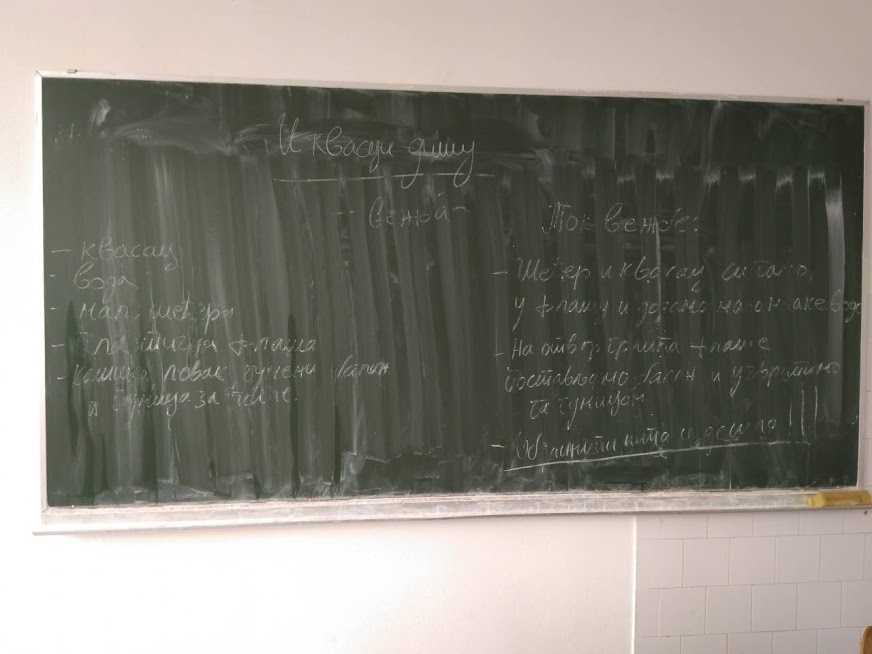 И квасци дишу
- вежба -
- квасац
- вода
- мало шећера
- пластична флаша
- кашика, левак, гумени балон
и гумица за тегле.
Ток вежбе:
- Шећер и квасац сипамо
у флашу и додамо мало млаке воде
- На отвор грлића флаше
постављамо балон и учврстимо
га гумицом
- Објаснити шта се десило!!!